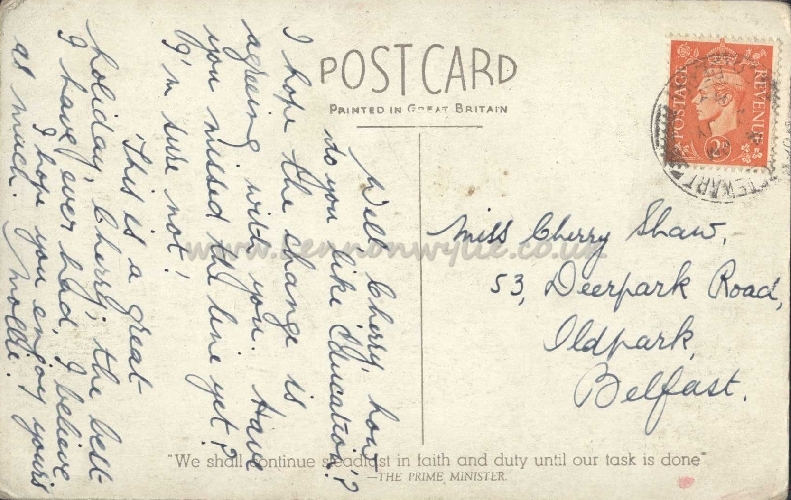 POST CARD
PRINTED IN GREAT BRITAIN
POSTAGE
REVENUE
2D
STEWART
Well Cherry, how
do you like Education?
I hope the change is
agreeing with you. Have
you missed the line yet?
I'm sure not!
This is a great
holiday, Cherry, the best
I have ever had, I believe
I hope you enjoy yours
as much. Mollie.
Miss Cherry Shaw,
53, Deerpark Road,
Oldpark,
Belfast.
www.lennonwylie.co.uk
"We shall continue steadfast in faith and duty until our task is done"
—THE PRIME MINISTER.